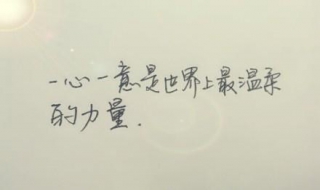 一心一意是世界上最温柔
的力量.